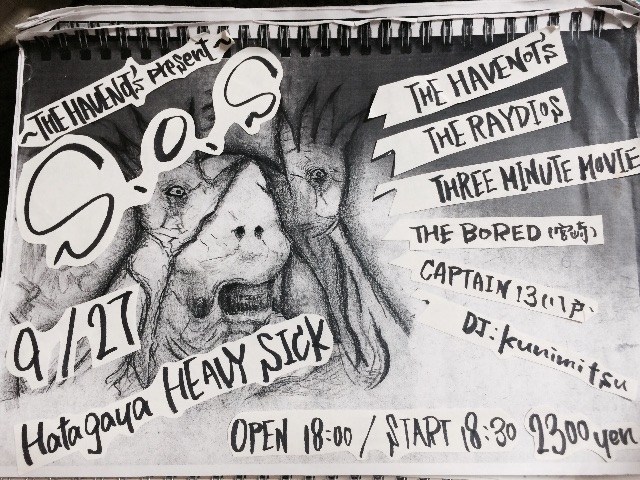 ~THE HAVENOT'S present~
S.O.S
9/27
Hatagaya HEAVY SICK
THE HAVENOT'S
THE RAYDIOS
THREE MINUTE MOVIE
THE BORED (宮崎)
CAPTAIN
DJ:kunimitsu
OPEN 18:00 / START 18:30 2300yen